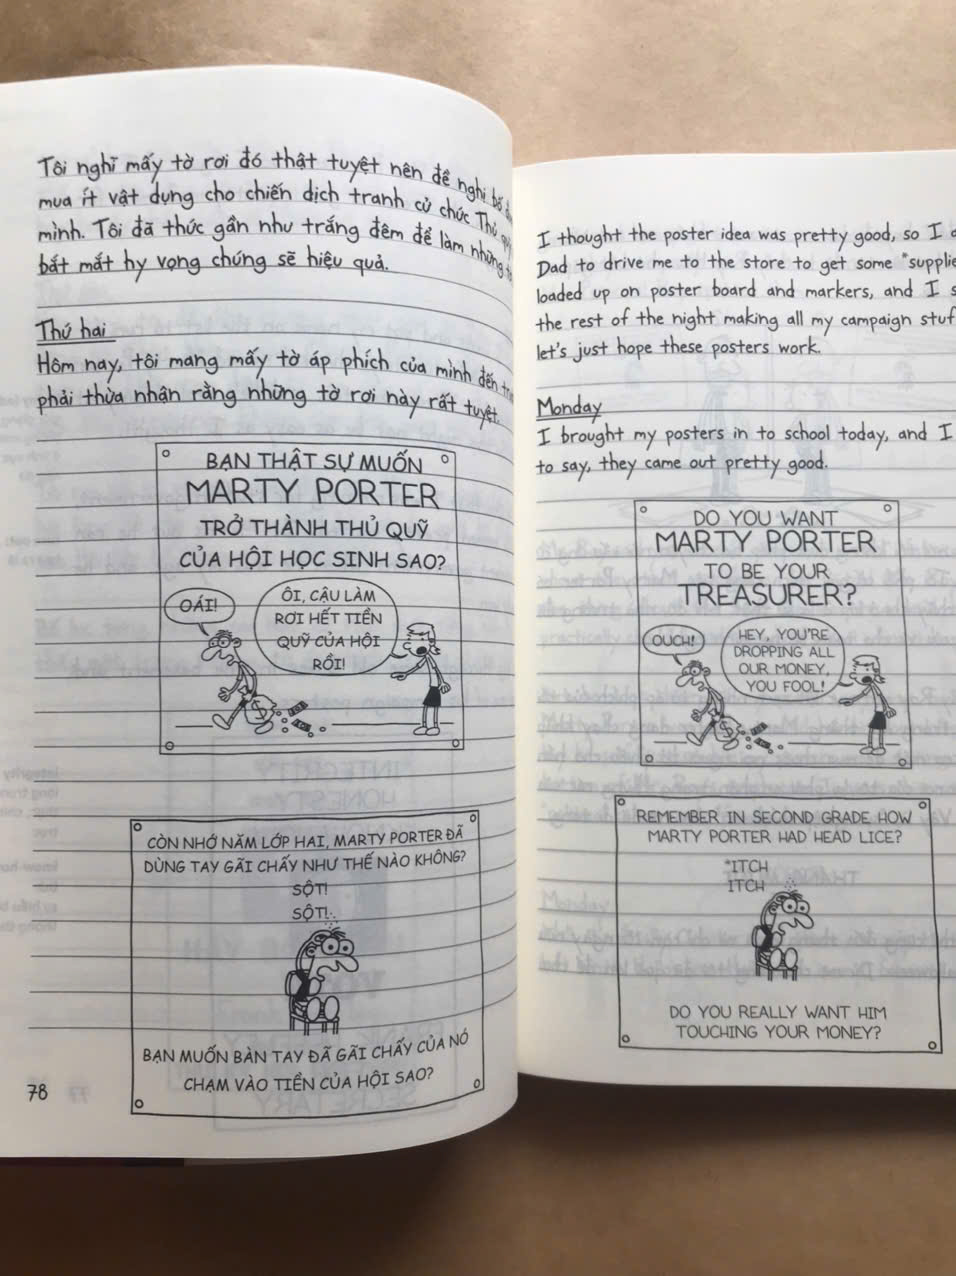 Tôi nghĩ mấy tờ rơi đó thật tuyệt nên đề nghị bố
mua ít vật dụng cho chiến dịch tranh cử chức Thủ quỹ
mình. Tôi đã thức gần như trắng đêm để làm những tờ
bắt mắt hy vọng chúng sẽ hiệu quả.
Thứ hai
Hôm nay, tôi mang mấy tờ áp phích của mình đến
phải thừa nhận rằng những tờ rơi này rất tuyệt.
BẠN THẬT SỰ MUỐN
MARTY PORTER
TRỞ THÀNH THỦ QUỸ
CỦA HỘI HỌC SINH SAO?
OÁI!
ÔI, CẬU LÀM
RƠI HẾT TIỀN
QUỸ CỦA HỘI
RỒI!
$
CÒN NHỚ NĂM LỚP HAI, MARTY PORTER ĐÃ
DÙNG TAY GÃI CHẤY NHƯ THẾ NÀO KHÔNG?
SỘT!
SỘT!
BẠN MUỐN BÀN TAY ĐÃ GÃI CHẤY CỦA NÓ
CHẠM VÀO TIỀN CỦA HỘI SAO?
78
I thought the poster idea was pretty good, so I
Dad to drive me to the store to get some "supplie
loaded up on poster board and markers, and I s
the rest of the night making all my campaign stuf
let's just hope these posters work.
Monday
I brought my posters in to school today, and I
to say, they came out pretty good.
DO YOU WANT
MARTY PORTER
TO BE YOUR
TREASURER?
OUCH!
HEY, YOU'RE
DROPPING ALL
OUR MONEY,
YOU FOOL!
$
REMEMBER IN SECOND GRADE HOW
MARTY PORTER HAD HEAD LICE?
*ITCH
ITCH
DO YOU REALLY WANT HIM
TOUCHING YOUR MONEY?